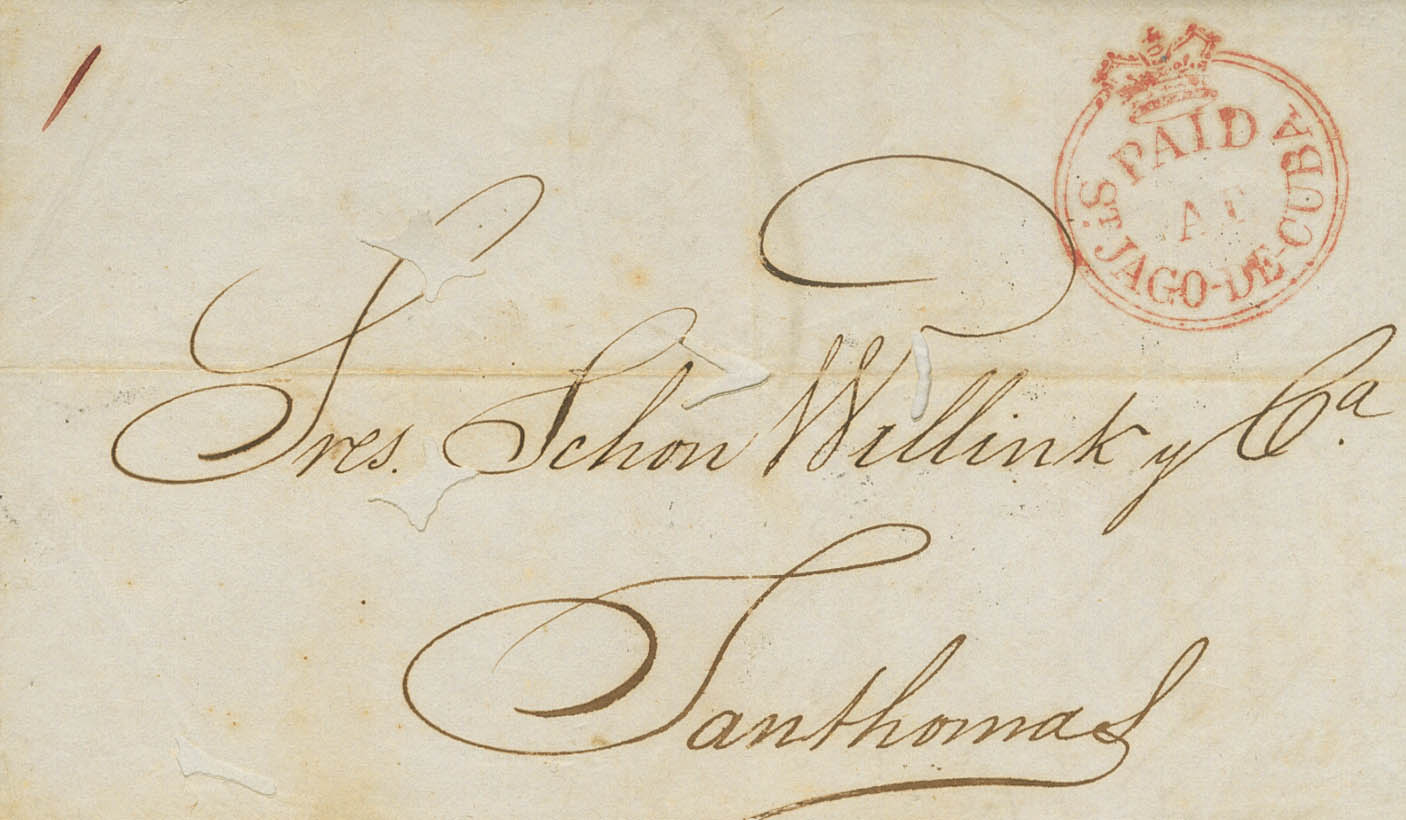 1
PAID
AT
ST. JAGO-DE-CUBA
Sres. Schön Willink y Ca.
Santhomas